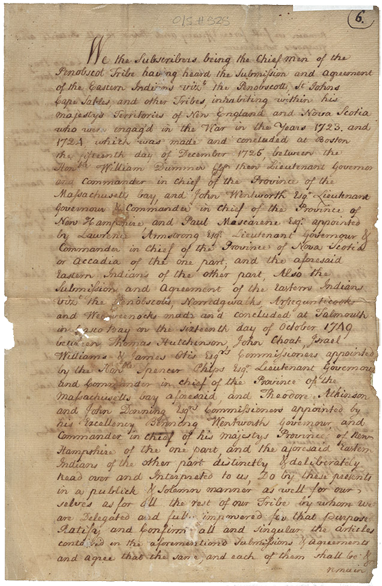 6.
We the Subscribers being the Chief men of the
Penobscot Tribe having heard the Submission and agreement
of the Eastern Indians vizt. the Penobscott, St Johns
Cape Sables, and other Tribes, inhabiting within his
majestys Territories of New England and Nova Scotia
who were engag'd in the War in the Years 1723, and
1724 which was made and concluded at Boston
the fifteenth day of December 1725 between the
Honble William Dummer Esqr then Lieutenant Governour
and Commander in Chief of the Province of the
Massachusetts bay and John Wentworth Esqr Lieutenant
Governour & Commander in Chief of the Province of
New Hampshire and Paul Mascarene Esqr appointed
by Laurence Armstrong Esqr Lieutenant Governour &
Commander in chief of the Province of Nova Scotia
or Accadia of the one part, and the aforesaid
Eastern Indians of the other part, Also the
Submission and Agreement of the Eastern Indians
vizt the Penobscots, Norridgwalks,
and Weweenocks made and concluded at Falmouth
in Casco bay on the sixteenth day of October 1749
between Thomas Hutchinson, John Choat, Israel
Williams & James Otis Esqrs Commissioners appointed
by the Honble Spencer Phips Esqr Lieutenant Governour
and Commander in chief of the Province of the
Massachusetts bay aforesaid and Theodore Atkinson
and John Downing Esqrs Commissioners appointed by
his Excellency Benning Wentworth Governour and
Commander in chief of his majestys Province of New
Hampshire of the one part and the aforesaid Eastern
Indians of the other part distinctly & deliberately
read over and Interpreted to us, Do by these presents
in a publick & Solemn manner as well for our
selves as for all the rest of our Tribe by whom we
are Delegated and fully impowered for that Purpose
Ratify and Confirm all and Singular the Articles
contain'd in the aforementioned Submissions & agreements
and agree that the same and each of them shall be &
remain